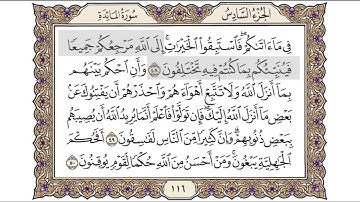 الجزء السادس
سورة المائدة
فِي مَآ ءَاتَىٰكُمْ ۖ فَٱسْتَبِقُوا۟ ٱلْخَيْرَٰتِ ۚ إِلَى ٱللَّهِ مَرْجِعُكُمْ جَمِيعًا
فَيُنَبِّئُكُم بِمَا كُنتُمْ فِيهِ تَخْتَلِفُونَ ٤٨ وَأَنِ ٱحْكُم بَيْنَهُم
بِمَآ أَنزَلَ ٱللَّهُ وَلَا تَتَّبِعْ أَهْوَآءَهُمْ وَٱحْذَرْهُمْ أَن يَفْتِنُوكَ عَنۢ
بَعْضِ مَآ أَنزَلَ ٱللَّهُ إِلَيْكَ ۖ فَإِن تَوَلَّوْا۟ فَٱعْلَمْ أَنَّمَا يُرِيدُ ٱللَّهُ أَن يُصِيبَهُم
بِبَعْضِ ذُنُوبِهِمْ ۗ وَإِنَّ كَثِيرًا مِّنَ ٱلنَّاسِ لَفَٰسِقُونَ ٤٩ أَفَحُكْمَ
ٱلْجَٰهِلِيَّةِ يَبْغُونَ ۚ وَمَنْ أَحْسَنُ مِنَ ٱللَّهِ حُكْمًا لِّقَوْمٍ يُوقِنُونَ ٥٠
١١٦